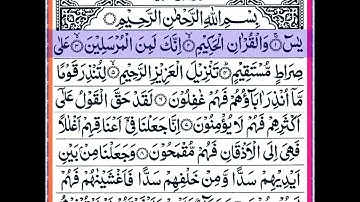 بِسْمِ اللهِ الرَّحْمٰنِ الرَّحِيْمِ
يٰسٓ ۚ وَالْقُرْاٰنِ الْحَكِيْمِ ۙ اِنَّكَ لَمِنَ الْمُرْسَلِيْنَ ۙ عَلٰى
صِرَاطٍ مُّسْتَقِيْمٍ ؕ تَنْزِيْلَ الْعَزِيْزِ الرَّحِيْمِ ۙ لِتُنْذِرَ قَوْمًا
مَّاۤ اُنْذِرَ اٰبَآؤُهُمْ فَهُمْ غٰفِلُوْنَ لَقَدْ حَقَّ الْقَوْلُ عَلٰۤى
اَكْثَرِهِمْ فَهُمْ لَا يُؤْمِنُوْنَ اِنَّا جَعَلْنَا فِيْۤ اَعْنَاقِهِمْ اَغْلٰلًا
فَهِيَ اِلَى الْاَذْقَانِ فَهُمْ مُّقْمَحُوْنَ وَجَعَلْنَا مِنْۢ بَيْنِ
اَيْدِيْهِمْ سَدًّا وَّمِنْ خَلْفِهِمْ سَدًّا فَاَغْشَيْنٰهُمْ فَهُمْ